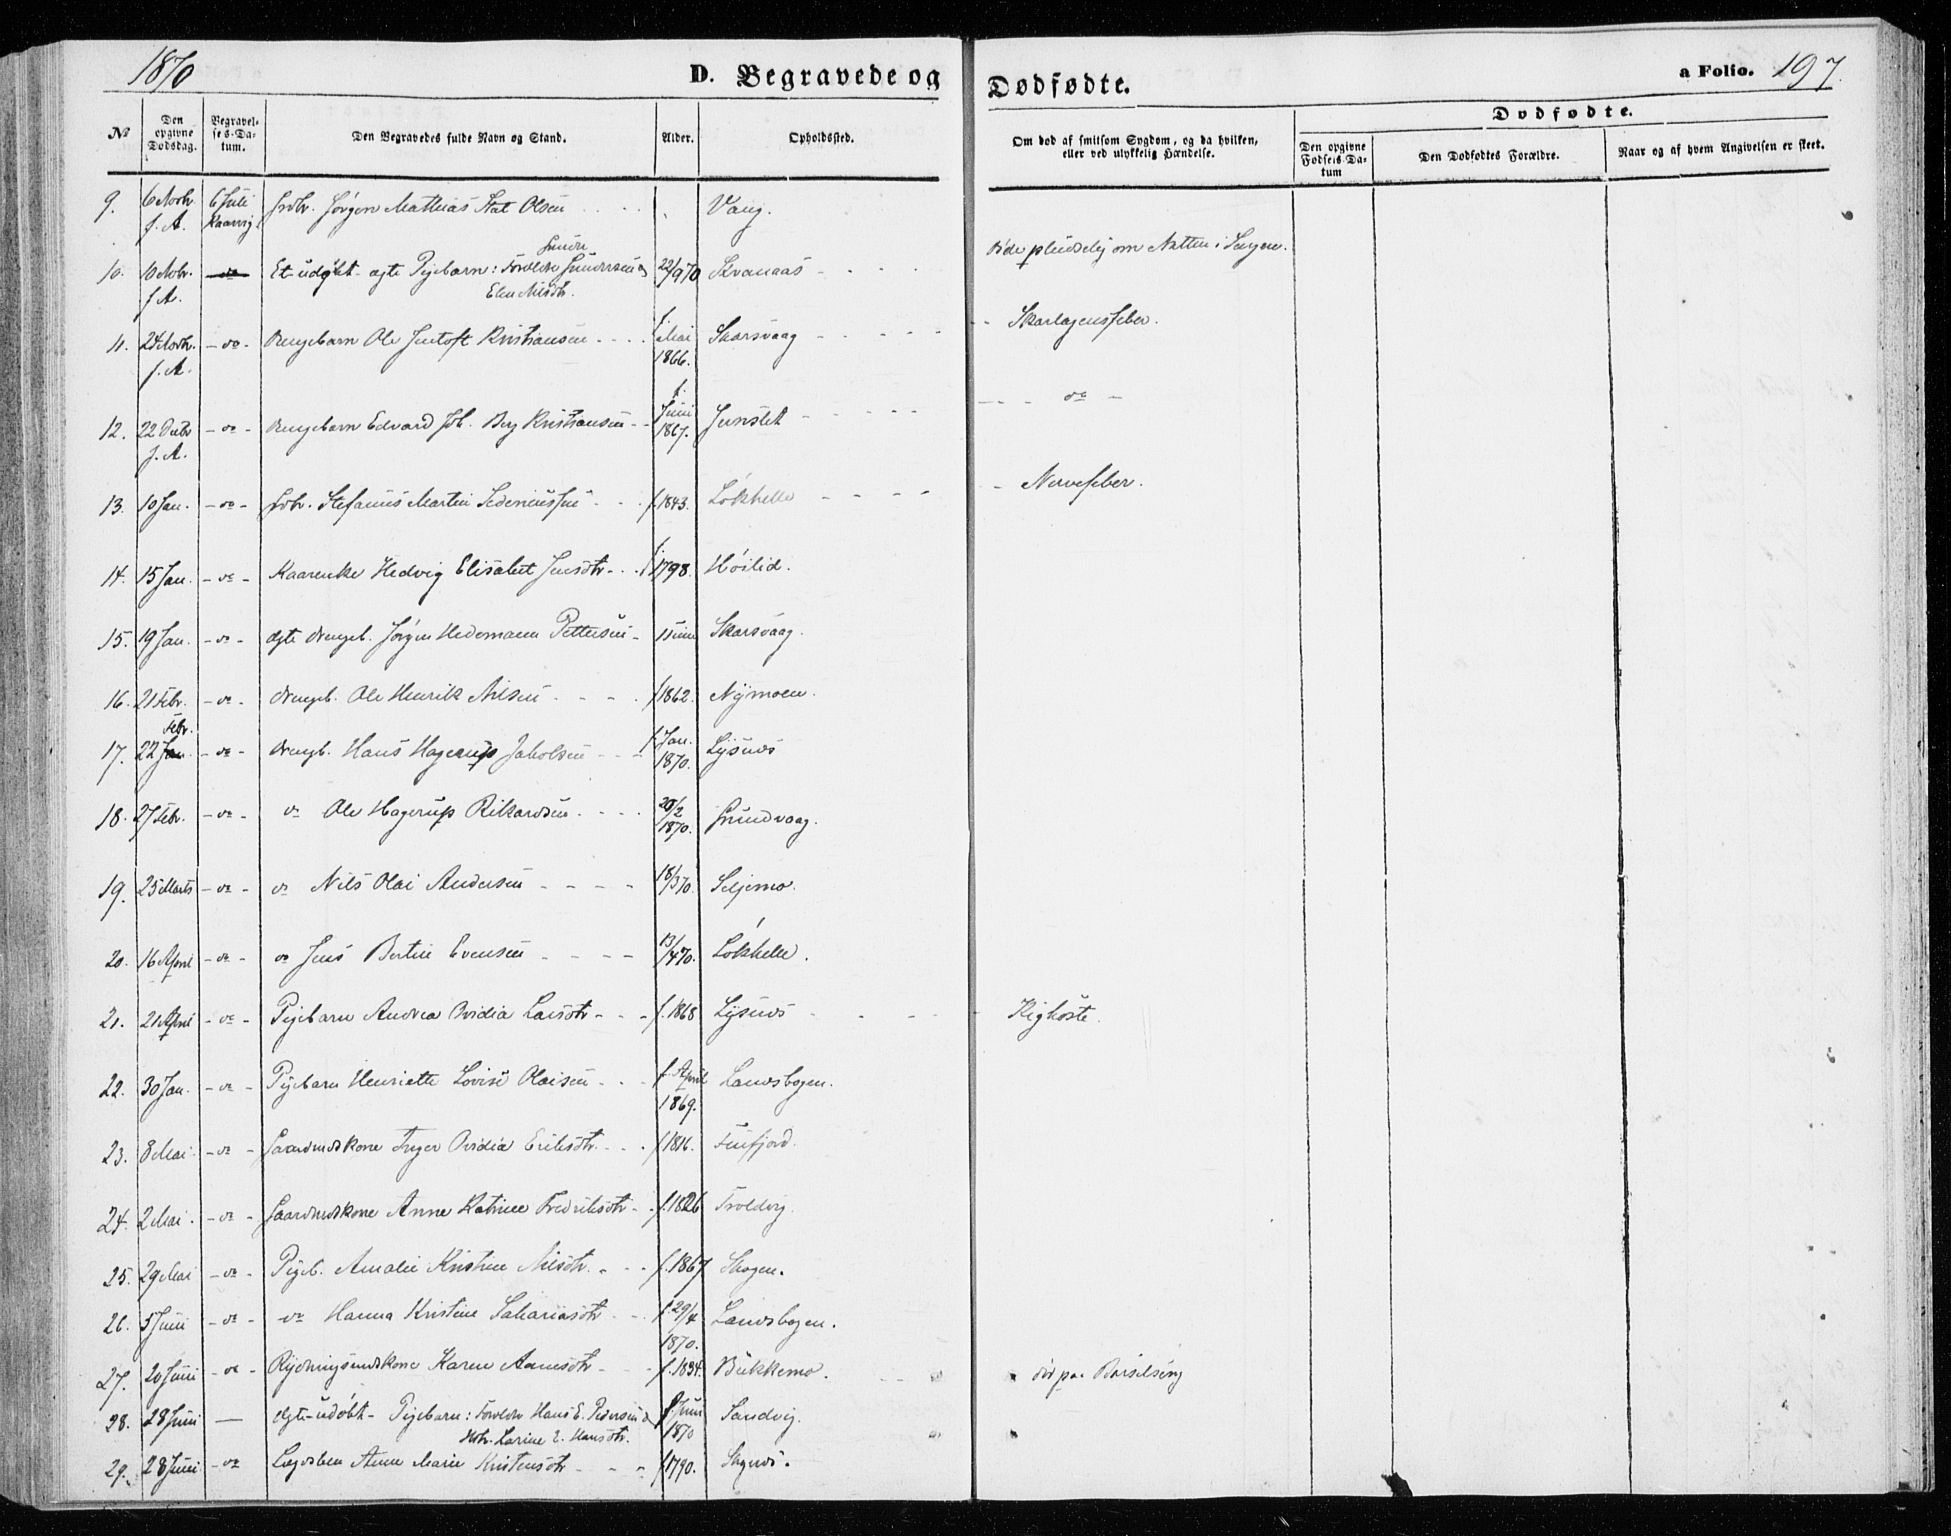 1870
D. Begravede og Dødfødte.
a Folio. 197.
No
Den opgivne Dødsdag.
Begravelses-Datum.
Den Begravedes fulde Navn og Stand.
Alder.
Opholdssted.
Om død af smitsom Sygdom, og da hvilken, eller ved ulykkelig Hændelse.
Dødfødte.
Den opgivne Fødsels-Datum
Den Dødfødtes Forældre.
Naar og af hvem Angivelsen er skeet.
9. 6 Novbr. f. A. 6 Juli Jørgen Mathias Olsen Vang.
10. 10 Novbr. f. A. Et udøbt ægte Pigebarn: Forældre Gunder Gundersen og Elen Nilsdtr. 22/9 70 Kvanaas Døde pludselig om Natten i Sengen.
11. 24 Novbr. f. A. - do - Drengebarn Ole Jentoft Kristiansen f. Mai 1866. Skarsvaag Skarlagensfeber.
12. 22 Decbr f. A. - do - Drengebarn Edvard Joh. Berg Kristiansen f. Juni 1867. do
13. 10 Jan. - do - Stefanus Martin f. 1843. Løkhelle Nervefeber.
14. 15 Jan. - do - Kaarenke Hedvig Elisabet Jensdtr. f. 1798. Høilid.
15. 19 Jan. - do - ægte Drengeb. Jørgen Hedemann Pettersen Skarsvaag.
16. 21 Febr. - do - Drengeb. Ole Henrik Nilsen f 1862. Nymoen.
17. 22 Febr. - do - Drengb. Hans Hagerup Jakobsen f. Jan. 1870. Lysnes
18. 27 Febr. - do - do Ole Hagerup Rikardsen 20/2 1870. Grundvaag.
19. 25 Marts - do - do Nils Olai Andersen 18/3 70. Seljemo.
20. 16 April - do - do Jens Bertin Evensen 13/4 70. Løkhelle.
21. 21 April - do - Pigebarn Andrea Ovidia Larsdtr f. 1868 Lysnes Kighoste.
22. 30 Jan. - do - Pigebarn Henriette Lovise Olaisen f. April 1869. Landsbogen.
23. 8 Mai - do - Gaardmdskone Inger Ovidia Eriksdtr. f 1816. Finfjord.
24. 2 Mai - do - Gaardmdskone Anne Katrine Fredriksdtr f. 1826 Troldvig.
25. 29 Mai - do - Pigeb. Amalie Kristine Nilsdtr. f. 1867 Skogen.
26. 5 Juni - do - do Hanna Kristine Sakariasdtr f. 29/4 1870. Landsbogen.
27. 20 Juni - do - Rydningsmdskone Karen f. 1834. Bukkemo. død paa Barselseng
28. 28 Juni — ægte udøbt Pigebarn: Forældre Hans E. Pedersen & Hstr. Larine E. Hansdtr. f. Juni 1870 Sandvig.
29. 28 Juni - do Lægdslem Anne Marie Kristensdtr f 1790.